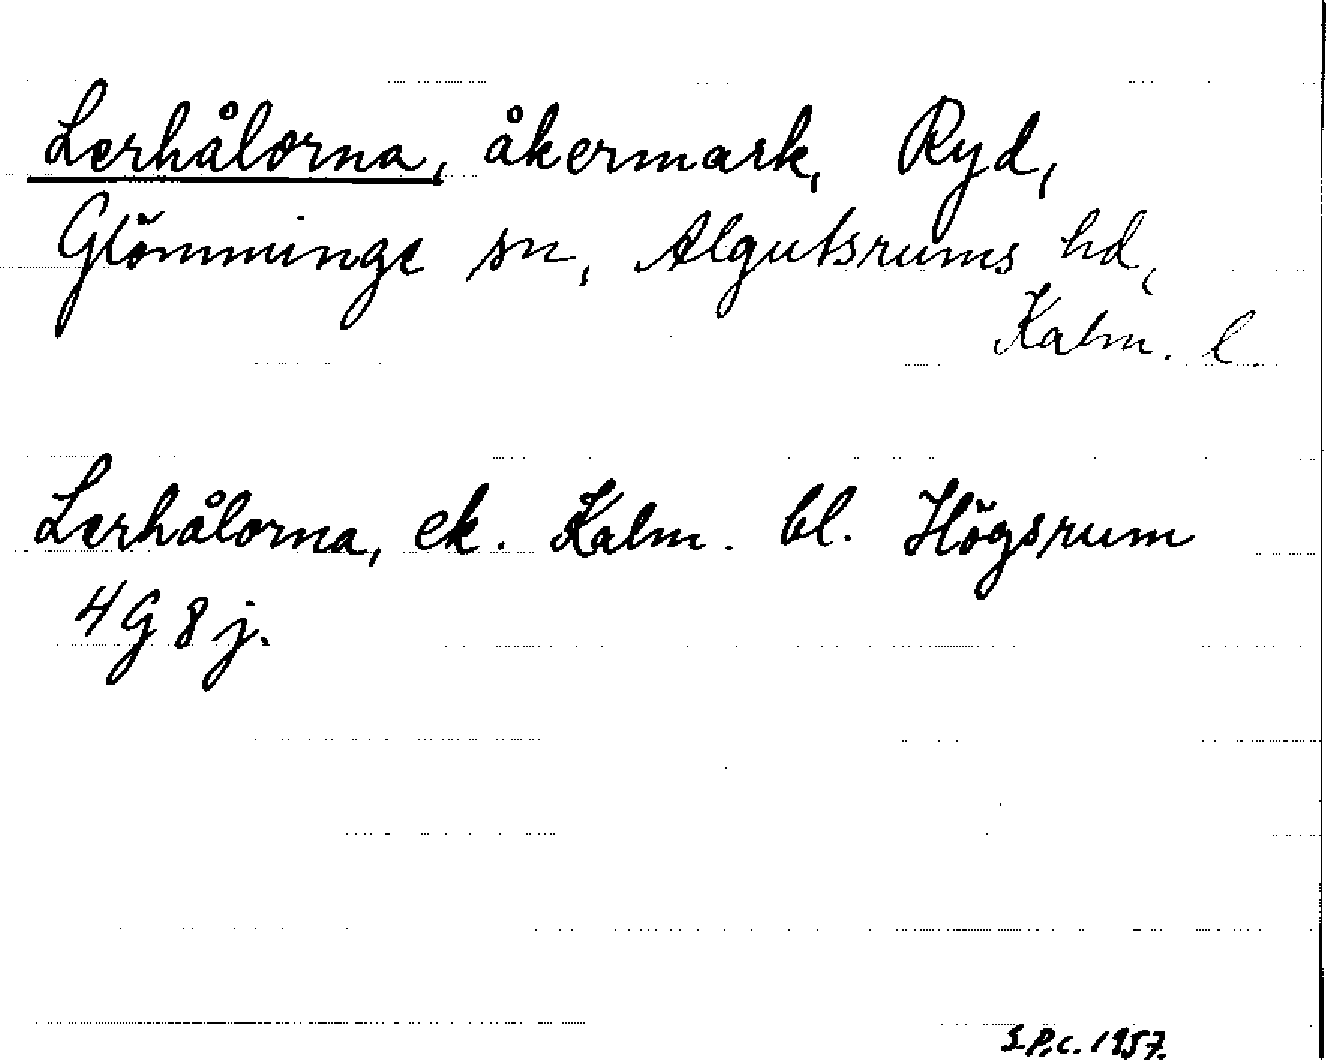 Lerhålorna, åkermark, Ryd,
Glömminge sn, Algutsrums hd,
Kalm. l.
Lerhålorna, ek. Kalm. bl. Högsrum
4G 8 j.
S.P.c. 1957.